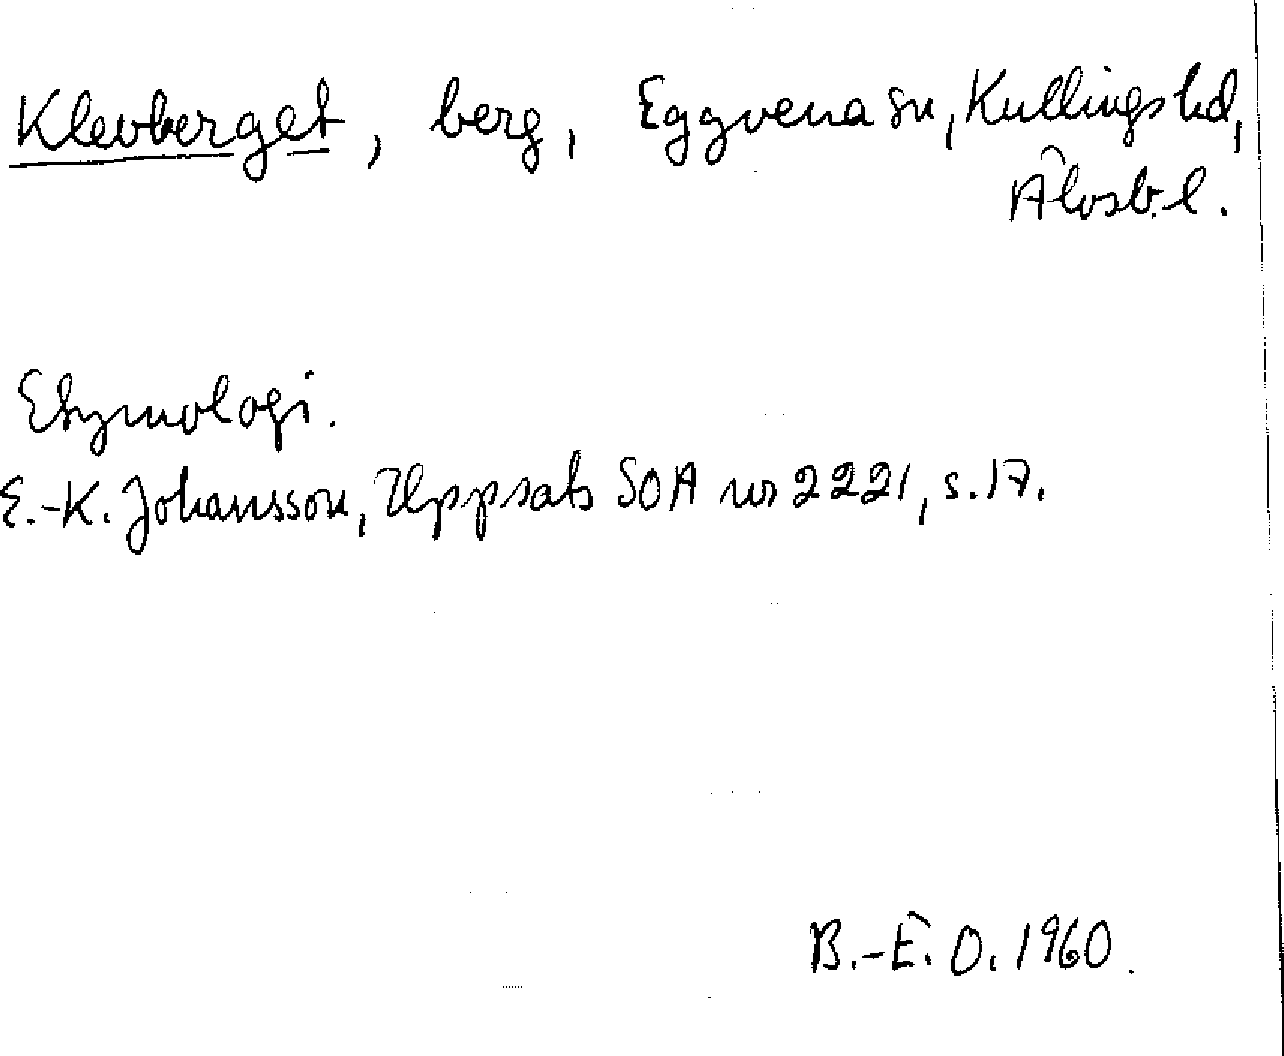 Klevberget, berg, Eggvena sn, Kullings hd,
Älvsb. l.
Etymologi.
E.-K. Johansson, Uppsats SOA nr 2221, s. 17.
B.-E. O. 1960.